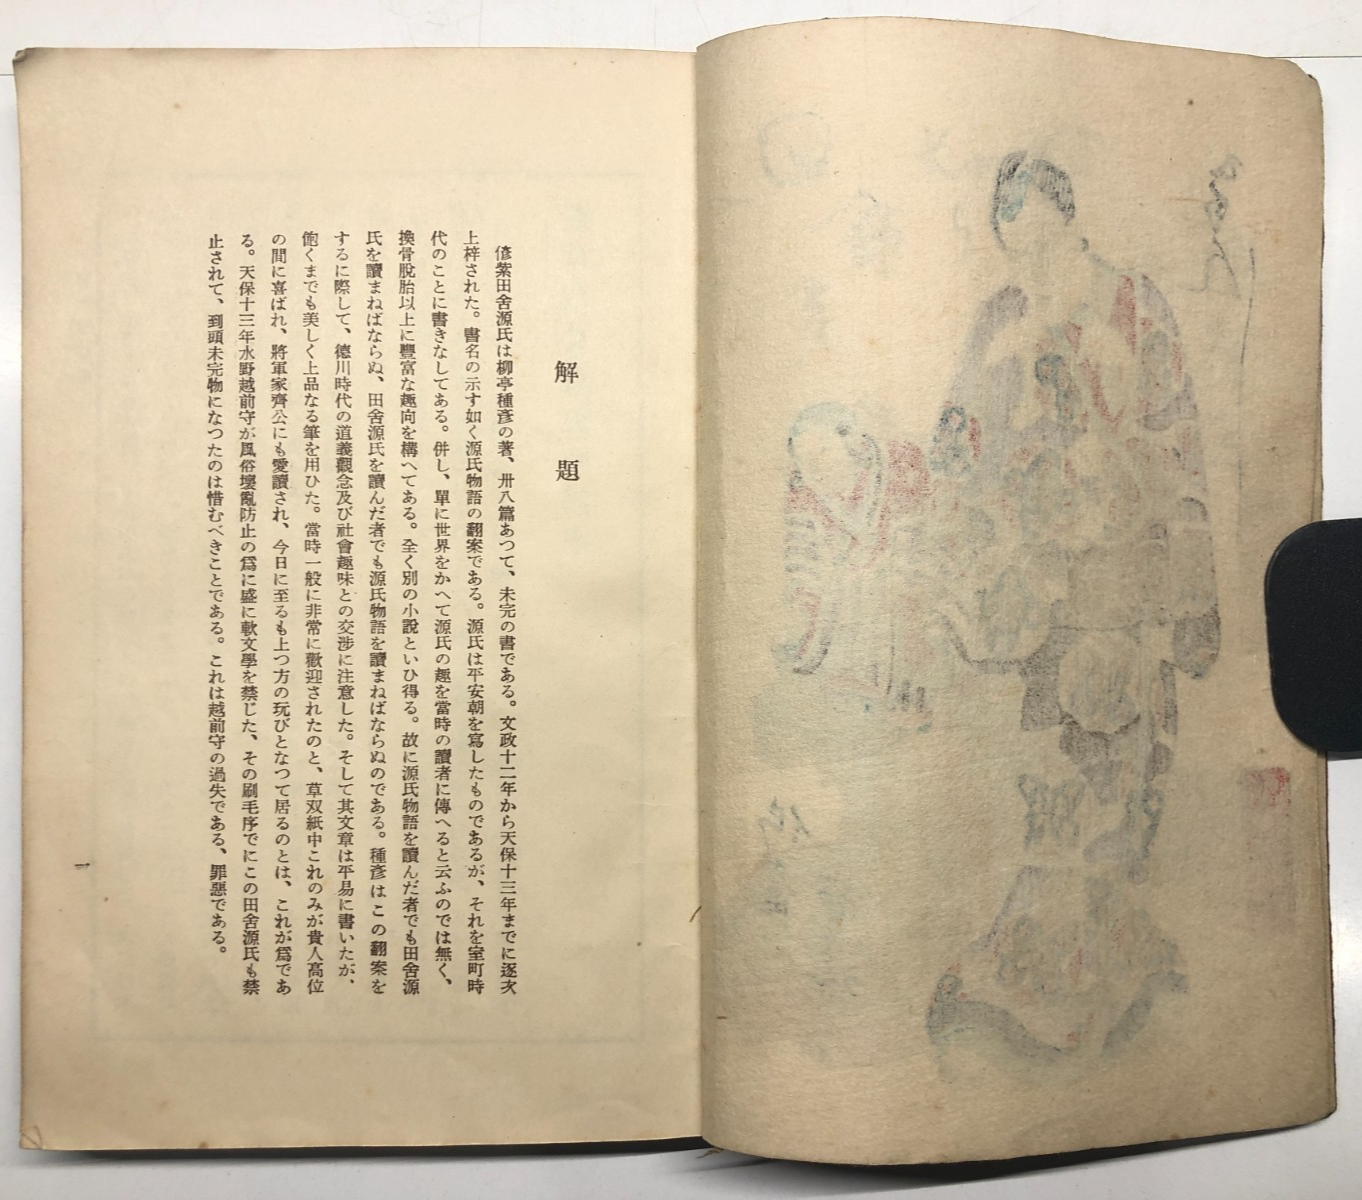 解題
偐紫田舍源氏は柳亭種彥の著、卅八篇あつて、未完の書である。文政十二年から天保十三年までに逐次
上梓された。書名の示す如く源氏物語の翻案である。源氏は平安朝を寫したものであるが、それを室町時
代のことに書きなしてある。併し、單に世界をかへて源氏の趣を當時の讀者に傳へると云ふのでは無く、
換骨脫胎以上に豐富な趣向を構へてある。全く別の小說といひ得る。故に源氏物語を讀んだ者でも田舍源
氏を讀まねばならぬ、田舍源氏を讀んだ者でも源氏物語を讀まねばならぬのである。種彥はこの翻案を
するに際して、德川時代の道義觀念及び社會趣味との交涉に注意した。そして其文章は平易に書いたが、
飽くまでも美しく上品なる筆を用ひた。當時一般に非常に歡迎されたのと、草双紙中これのみが貴人高位
の間に喜ばれ、將軍家齊公にも愛讀され、今日に至るも上つ方の玩びとなつて居るのとは、これが爲であ
る。天保十三年水野越前守が風俗壞亂防止の爲に盛に軟文學を禁じた、その刷毛序でにこの田舍源氏も禁
止されて、到頭未完物になつたのは惜むべきことである。これは越前守の過失である、罪惡である。
一